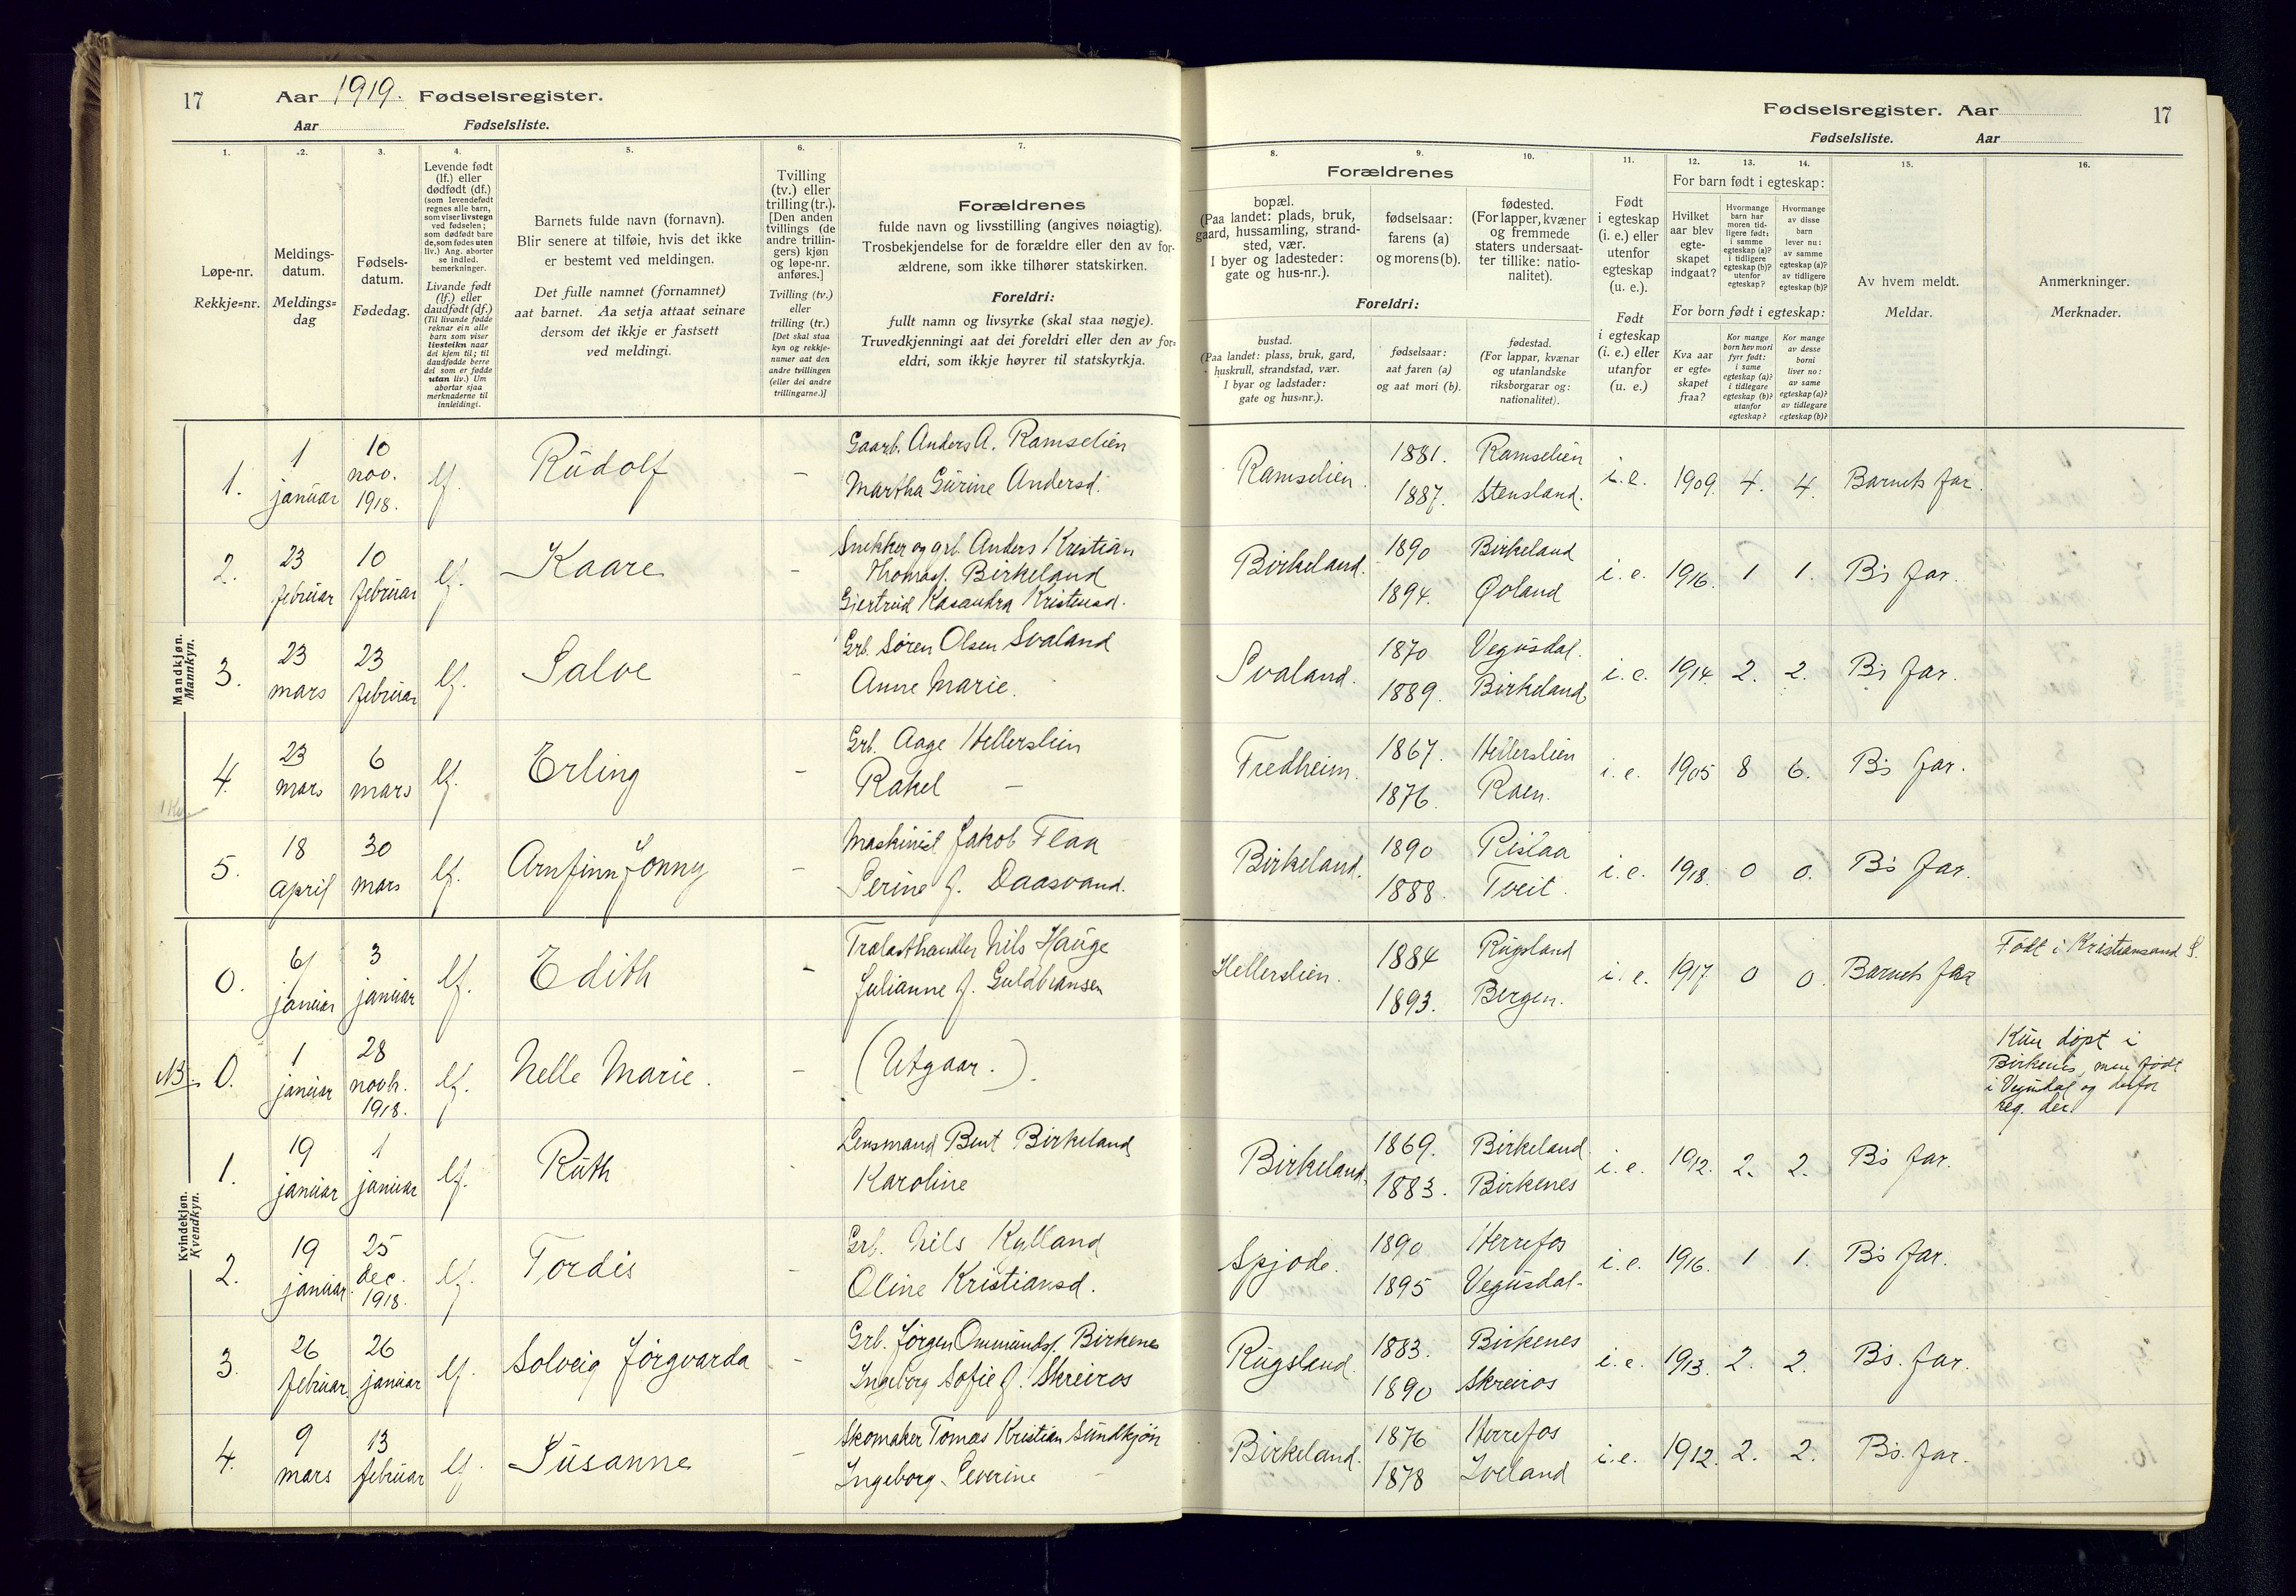 17 Aar 1919. Fødselsregister.
Aar Fødselsliste.
Fødselsregister. Aar 17
Fødselsliste. Aar
1. 2. 3. 4. 5. 6. 7.
8. 9. 10. 11. 12. 13. 14. 15. 16.
Løpe-nr.
Rekkje=nr.
Meldings-
datum.
Meldings=
dag
Fødsels-
datum.
Fødedag.
Levende født
(lf.) eller
dødfødt (df.)
(som levendefødt
regnes alle barn,
som viser livstegn
ved fødselen;
som dødfødt bare
de, som fødes uten
liv.) Ang. aborter
se indled.
bemerkninger.
Livande født
(lf.) eller
daudfødt (df.)
(Til livande fødde
reknar ein alle
barn som viser
livsteikn naar
dei kjem til; til
daudfødde berre
dei som er fødde
utan liv.) Um
abortar sjaa
merknaderne til
innleidingi.
Barnets fulde navn (fornavn).
Blir senere at tilføie, hvis det ikke
er bestemt ved meldingen.
Det fulle namnet (fornamnet)
aat barnet. Aa setja attaat seinare
dersom det ikkje er fastsett
ved meldingi.
Tvilling
(tv.) eller
trilling (tr.).
[Den anden
tvillings (de
andre trillin-
gers) kjøn
og løpe-nr.
anføres.]
Tvilling (tv.)
eller
trilling (tr.)
[Det skal staa
kyn og rekkje-
numer aat den
andre tvillingen
(eller dei andre
trillingarne.)]
Forældrenes
fulde navn og livsstilling (angives nøiagtig).
Trosbekjendelse for de forældre eller den av for-
ældrene, som ikke tilhører statskirken.
Foreldri:
fullt namn og livsyrke (skal staa nøgje).
Truvedkjenningi aat dei foreldri eller den av for=
eldri, som ikkje høyrer til statskyrkja.
Forældrenes
bopæl.
(Paa landet: plads, bruk,
gaard, hussamling, strand-
sted, vær.
I byer og ladesteder:
gate og hus-nr.).
fødselsaar:
farens (a)
og morens (b).
fødested.
(For lapper, kvæner
og fremmede
staters undersaat-
ter tillike: natio-
nalitet).
Foreldri:
bustad.
(Paa landet: plass, bruk, gard,
huskrull, strandstad, vær.
I byar og ladstader:
gate og hus=nr.).
fødselsaar:
aat faren (a)
og aat mori (b).
fødestad.
(For lappar, kvænar
og utanlandske
riksborgarar og:
nationalitet).
Født
i egteskap
(i. e.) eller
utenfor
egteskap
(u. e.).
Født
i egteskap
(i. e.) eller
utanfor
(u. e.)
For barn født i egteskap:
Hvilket
aar blev
egte-
skapet
indgaat?
Hvormange
barn har
moren tid-
ligere født:
i samme
egteskap (a)?
i tidligere
egteskap (b)?
utenfor
egteskap?
Hvormange
av disse
barn
lever nu:
av samme
egteskap (a)?
av tidligere
egteskap (b)?
For born født i egteskap:
Kva aar
er egte=
skapet
fraa?
Kor mange
born hev mori
fyrr født:
i same
egteskap (a)?
i tidlegare
egteskap (b)?
utanfor
egteskap?
Kor mange
av desse
borni
liver no:
av same
egteskap (a)?
av tidlegare
egteskap (b)?
Av hvem meldt.
Meldar.
Anmerkninger.
Merknader.
Mandkjøn.
Mannkyn.
1. 1 januar 10 nov. 1918. lf. Rudolf – Gaarb. Anders A. Ramselien
Martha Gurine Andersd.
Ramselien. 1881. Ramselien i. e. 1909. 4. 4. Barnets far.
1887. Stensland.
2. 23 februar 10 februar lf. Kaare – Snekker og grb. Anders Kristian
Thomas. Birkeland
Gjertrud Kasandra Kristensd.
Birkeland. 1890 Birkeland i. e. 1916. 1 1. B's far.
1894. Øoland
3. 23 mars 23 februar lf. Salve – Grb. Søren Olsen Svaland
Anne Marie.
Svaland. 1870 Vegusdal. i. e. 1914. 2. 2. B's far.
1889. Birkeland
4. 23 mars 6 mars lf. Erling – Grb. Aage Hellerslien
Rakel –
Fredheim. 1867. Hellerslien i. e. 1905 8 6. B's far.
1876. Raen.
5. 18 april 30 mars lf. Arnfinn Jonny – Maskinist Jakob Flaa
Serine f. Daasvand.
Birkeland. 1890 Rislaa i. e. 1918. 0 0. B's far.
1888. Tveit.
Kvindekjøn.
Kvendkyn.
0. 6/ januar 3 januar lf. Edith – Trælasthandler Nils Hauge
Julianne f. Guldbransen
Hellerslien. 1884 Rugsland i. e. 1917. 0 0. Barnets far Født i Kristiansand S.
1893. Bergen.
NB. 0. 1 januar 28 novb. 1918. lf. Nelle Marie. – (Utgaar.).
Kun døpt i
Birkenes, men født
i Vegusdal og derfor
reg. der.
1. 19 januar 1 januar lf. Ruth - Lensmand Bent Birkeland
Karoline
Birkeland. 1869. Birkeland. i. e. 1912. 2. 2. B's far.
1883. Birkenes
2. 19 januar. 25 dec. 1918. lf. Tordis – Grb. Nils Kylland
Oline Kristiansd.
Spjode. 1890 Herrefos i. e. 1916. 1 1. B's far.
1895 Vegusdal.
3. 26 februar 26 januar lf. Solveig Jørgvarda – Grb. Jørgen Ommunds. Birkenes
Ingeborg Sofie f. Skreiros
Rugsland. 1883. Birkenes i. e. 1913. 2. 2. B's. far.
1890 Skreiros
4. 9 mars 13 februar lf. Susanne – Skomaker Tomas Kristian Sundkjøn
Ingeborg Severine –
Birkeland. 1876 Herrefos i. e. 1912. 2. 2. B's. far.
1878 Iveland